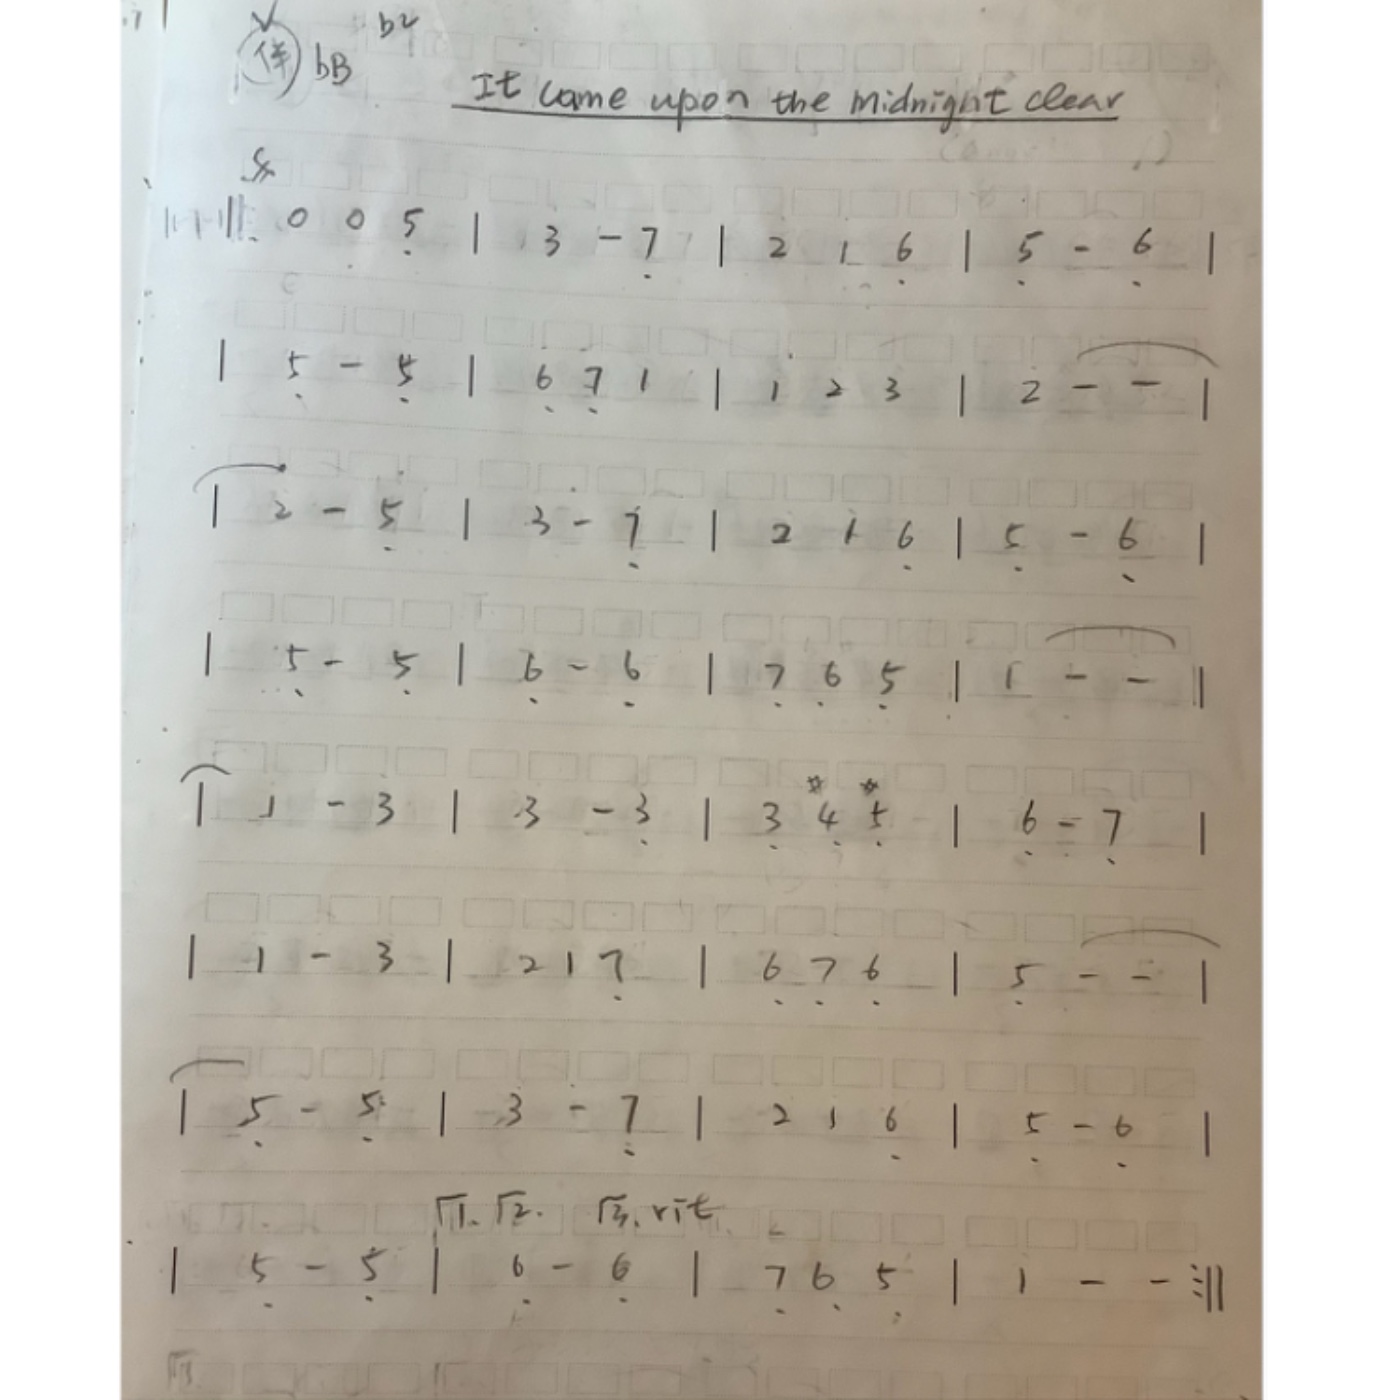 b2
伴 bB
It came upon the midnight clear
0 0 5̣ | 3 - 7̣ | 2 1 6̣ | 5̣ - 6̣ |
| 5̣ - 5̣ | 6̣ 7̣ 1 | 1 2 3 | 2 - - |
| 2 - 5̣ | 3 - 7̣ | 2 1 6̣ | 5̣ - 6̣ |
| 5̣ - 5̣ | 6̣ - 6̣ | 7̣ 6̣ 5̣ | 1 - - |
| 1 - 3 | 3 - 3̣ | 3̣ #4̣ #5̣ | 6̣ - 7̣ |
| 1 - 3 | 2 1 7̣ | 6̣ 7̣ 6̣ | 5̣ - - |
| 5̣ - 5̣ | 3 - 7̣ | 2 1 6̣ | 5̣ - 6̣ |
┌1. ┌2. ┌3. rit
| 5̣ - 5̣ | 6̣ - 6̣ | 7̣ 6̣ 5̣ | 1 - - :||